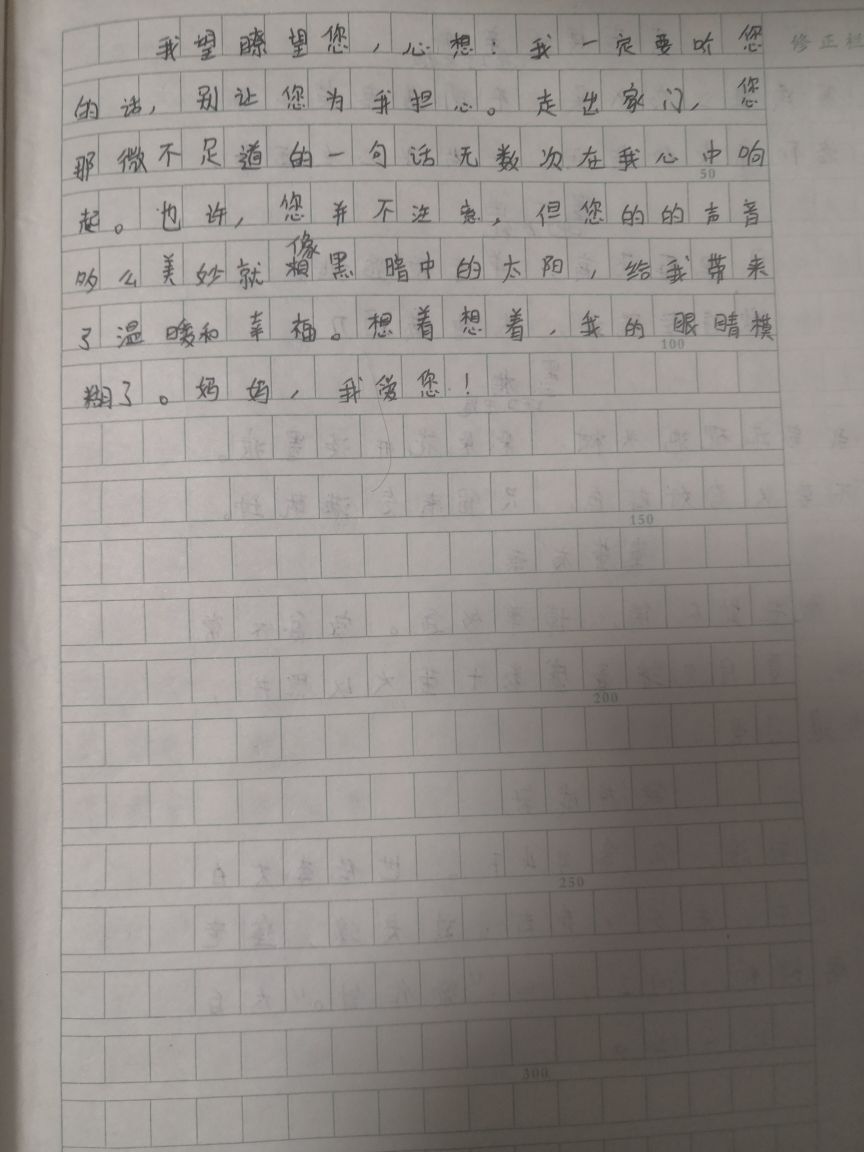 我望瞭望您，心想：我一定要听您
修正栏
的话，别让您为我担心。走出家门，您
那微不足道的一句话无数次在我心中响
50
起。也许，您并不注意，但您的的声音
像
多么美妙就相黑暗中的太阳，给我带来
了温暖和幸福。想着想着，我的眼睛模
100
糊了。妈妈，我爱您！
150
200
250
300